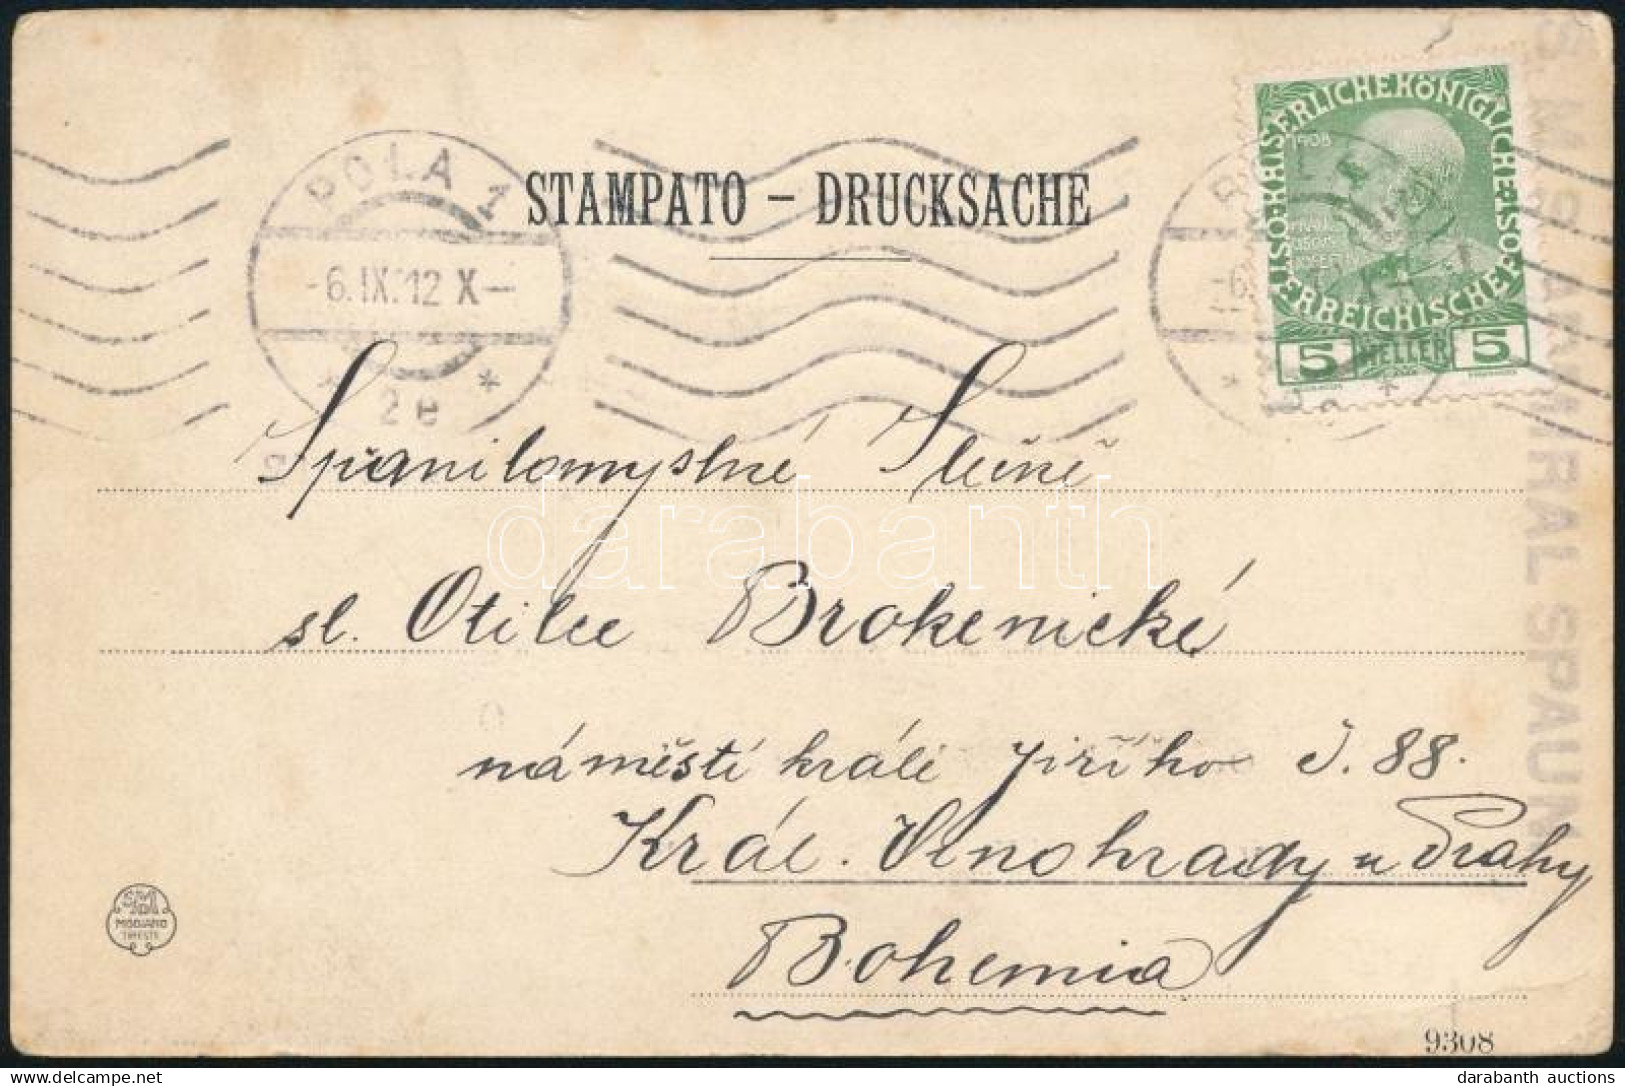 POLA 1
-6.IX.12 X-
* 2e *
STAMPATO – DRUCKSACHE
KAISERLICHE KÖNIGLICHE
ÖSTERREICHISCHE
1908
5 HELLER 5
S. M. S. ADMIRAL SPAUN
Spanilomyslné Slečně
sl. Otilce Brokenické
náměstí krále Jiřího č. 88.
Král. Vinohrady u Prahy
Bohemia
MODIANO
TRIESTE
9308
darabanth
darabanth auctions